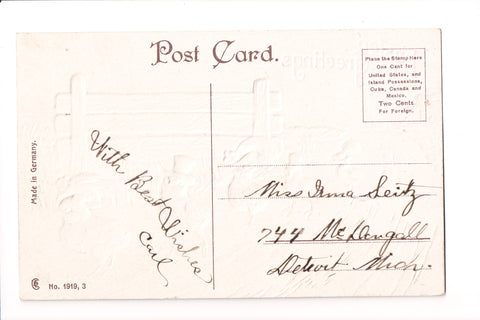 Post Card.
Place the Stamp Here
One Cent for
United States, and
Island Possessions,
Cuba, Canada and
Mexico.
Two Cents
For Foreign.
Made in Germany.
With Best Wishes
Carl
Miss Irma Seitz
744 McDougall
Detroit Mich.
No. 1919, 3